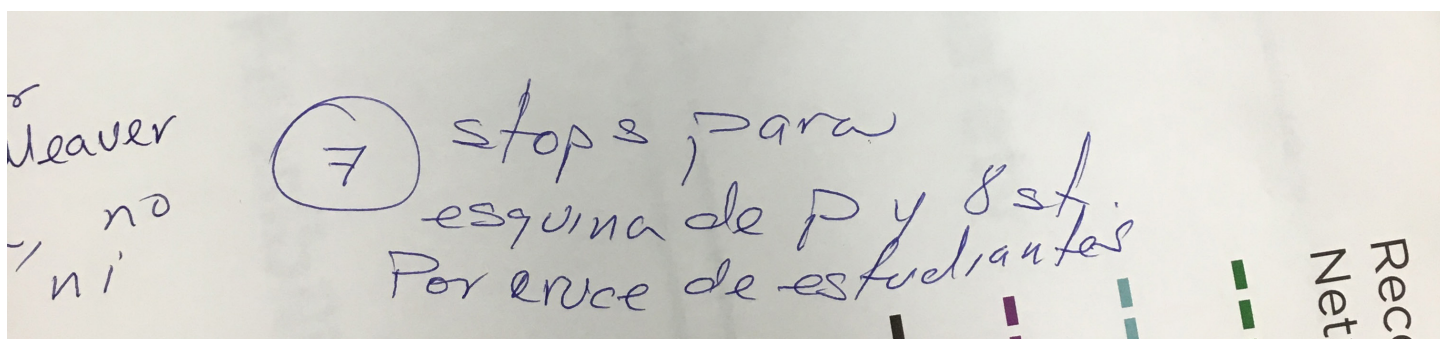 Weaver
no
ni
7 stops para
esquina de P y 8 st.
Por cruce de estudiantes
Rec
Net